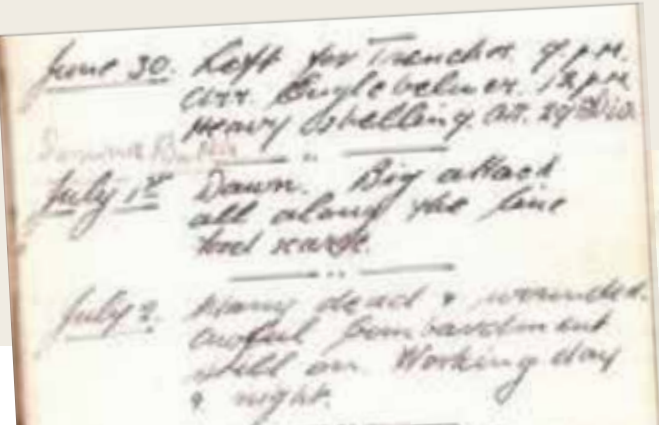 June 30. Left for Trenches. 9 p.m.
Arr. Englebelmer. 12 p.m.
Heavy shelling. Att. 29th Div.
Somme Battle
July 1st Dawn. Big attack
all along the line
food scarce.
July 2. Many dead & wounded.
Awful bombardment
still on. Working day
& night.